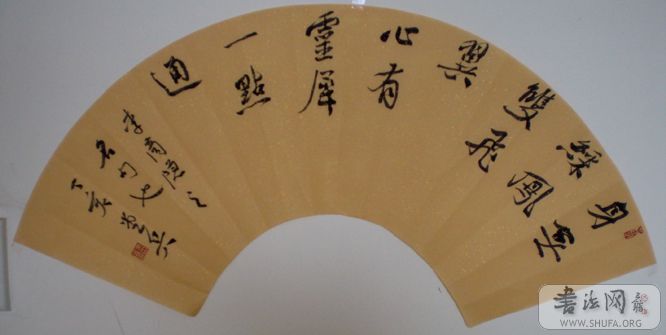 身無
綵鳳
雙飛
翼
心有
靈犀
一點
通
李商隱之
名句也
丁亥
书法网
WWW.SHUFA.ORG